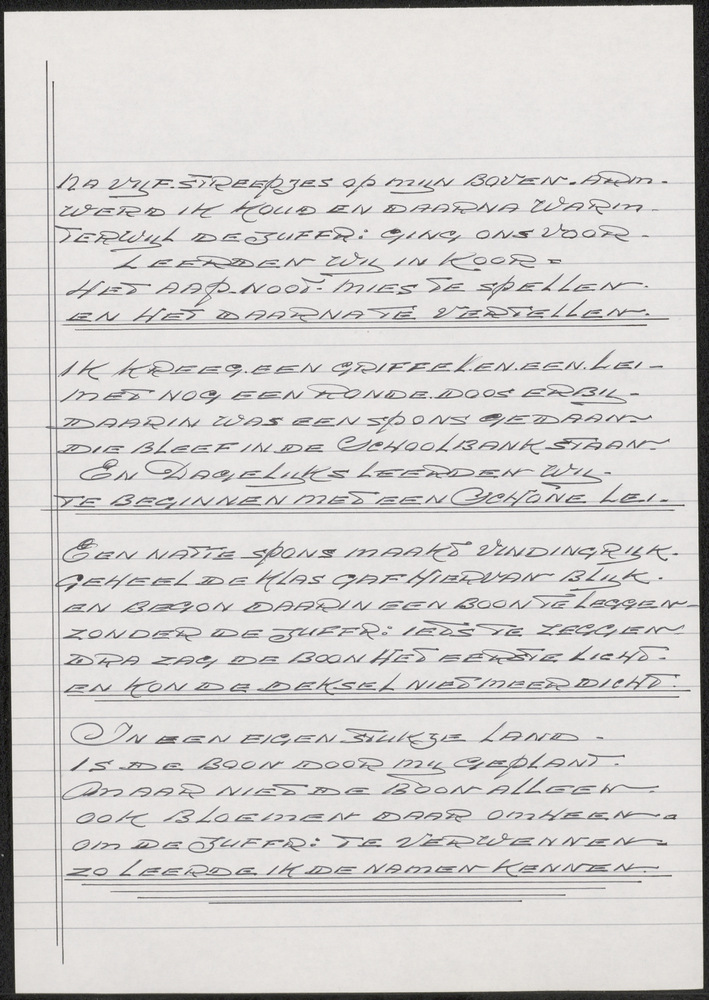 NA VIJF.STREEPJES OP MIJN BOVEN.ARM.
WERD IK KOUD EN DAARNA WARM.
TERWIJL DE JUFFR: GING ONS VOOR.
LEERDEN WIJ IN KOOR =
HET AAP.NOOT.MIES TE SPELLEN.
EN HET DAARNA TE VERTELLEN.
IK KREEG.EEN GRIFFEL.EN.EEN.LEI-
MET NOG EEN RONDE.DOOS ERBIJ-
DAARIN WAS EEN SPONS GEDAAN-
DIE BLEEF IN DE SCHOOLBANK STAAN.
EN DAGELIJKS LEERDEN WIJ-
TE BEGINNEN MET EEN SCHONE LEI.
EEN NATTE SPONS MAAKT VINDINGRIJK.
GEHEEL DE KLAS GAF HIERVAN BLIJK.
EN BEGON DAARIN EEN BOON TE LEGGEN-
ZONDER DE JUFFR: IETS TE ZEGGEN.
DRA ZAG DE BOON HET EERSTE LICHT.
EN KON DE DEKSEL NIET MEER DICHT.
IN EEN EIGEN STUKJE LAND -
IS DE BOON DOOR MIJ GEPLANT.
MAAR NIET DE BOON ALLEEN-
OOK BLOEMEN DAAR OMHEEN-
OM DE JUFFR: TE VERWENNEN-
ZO LEERDE IK DE NAMEN KENNEN.